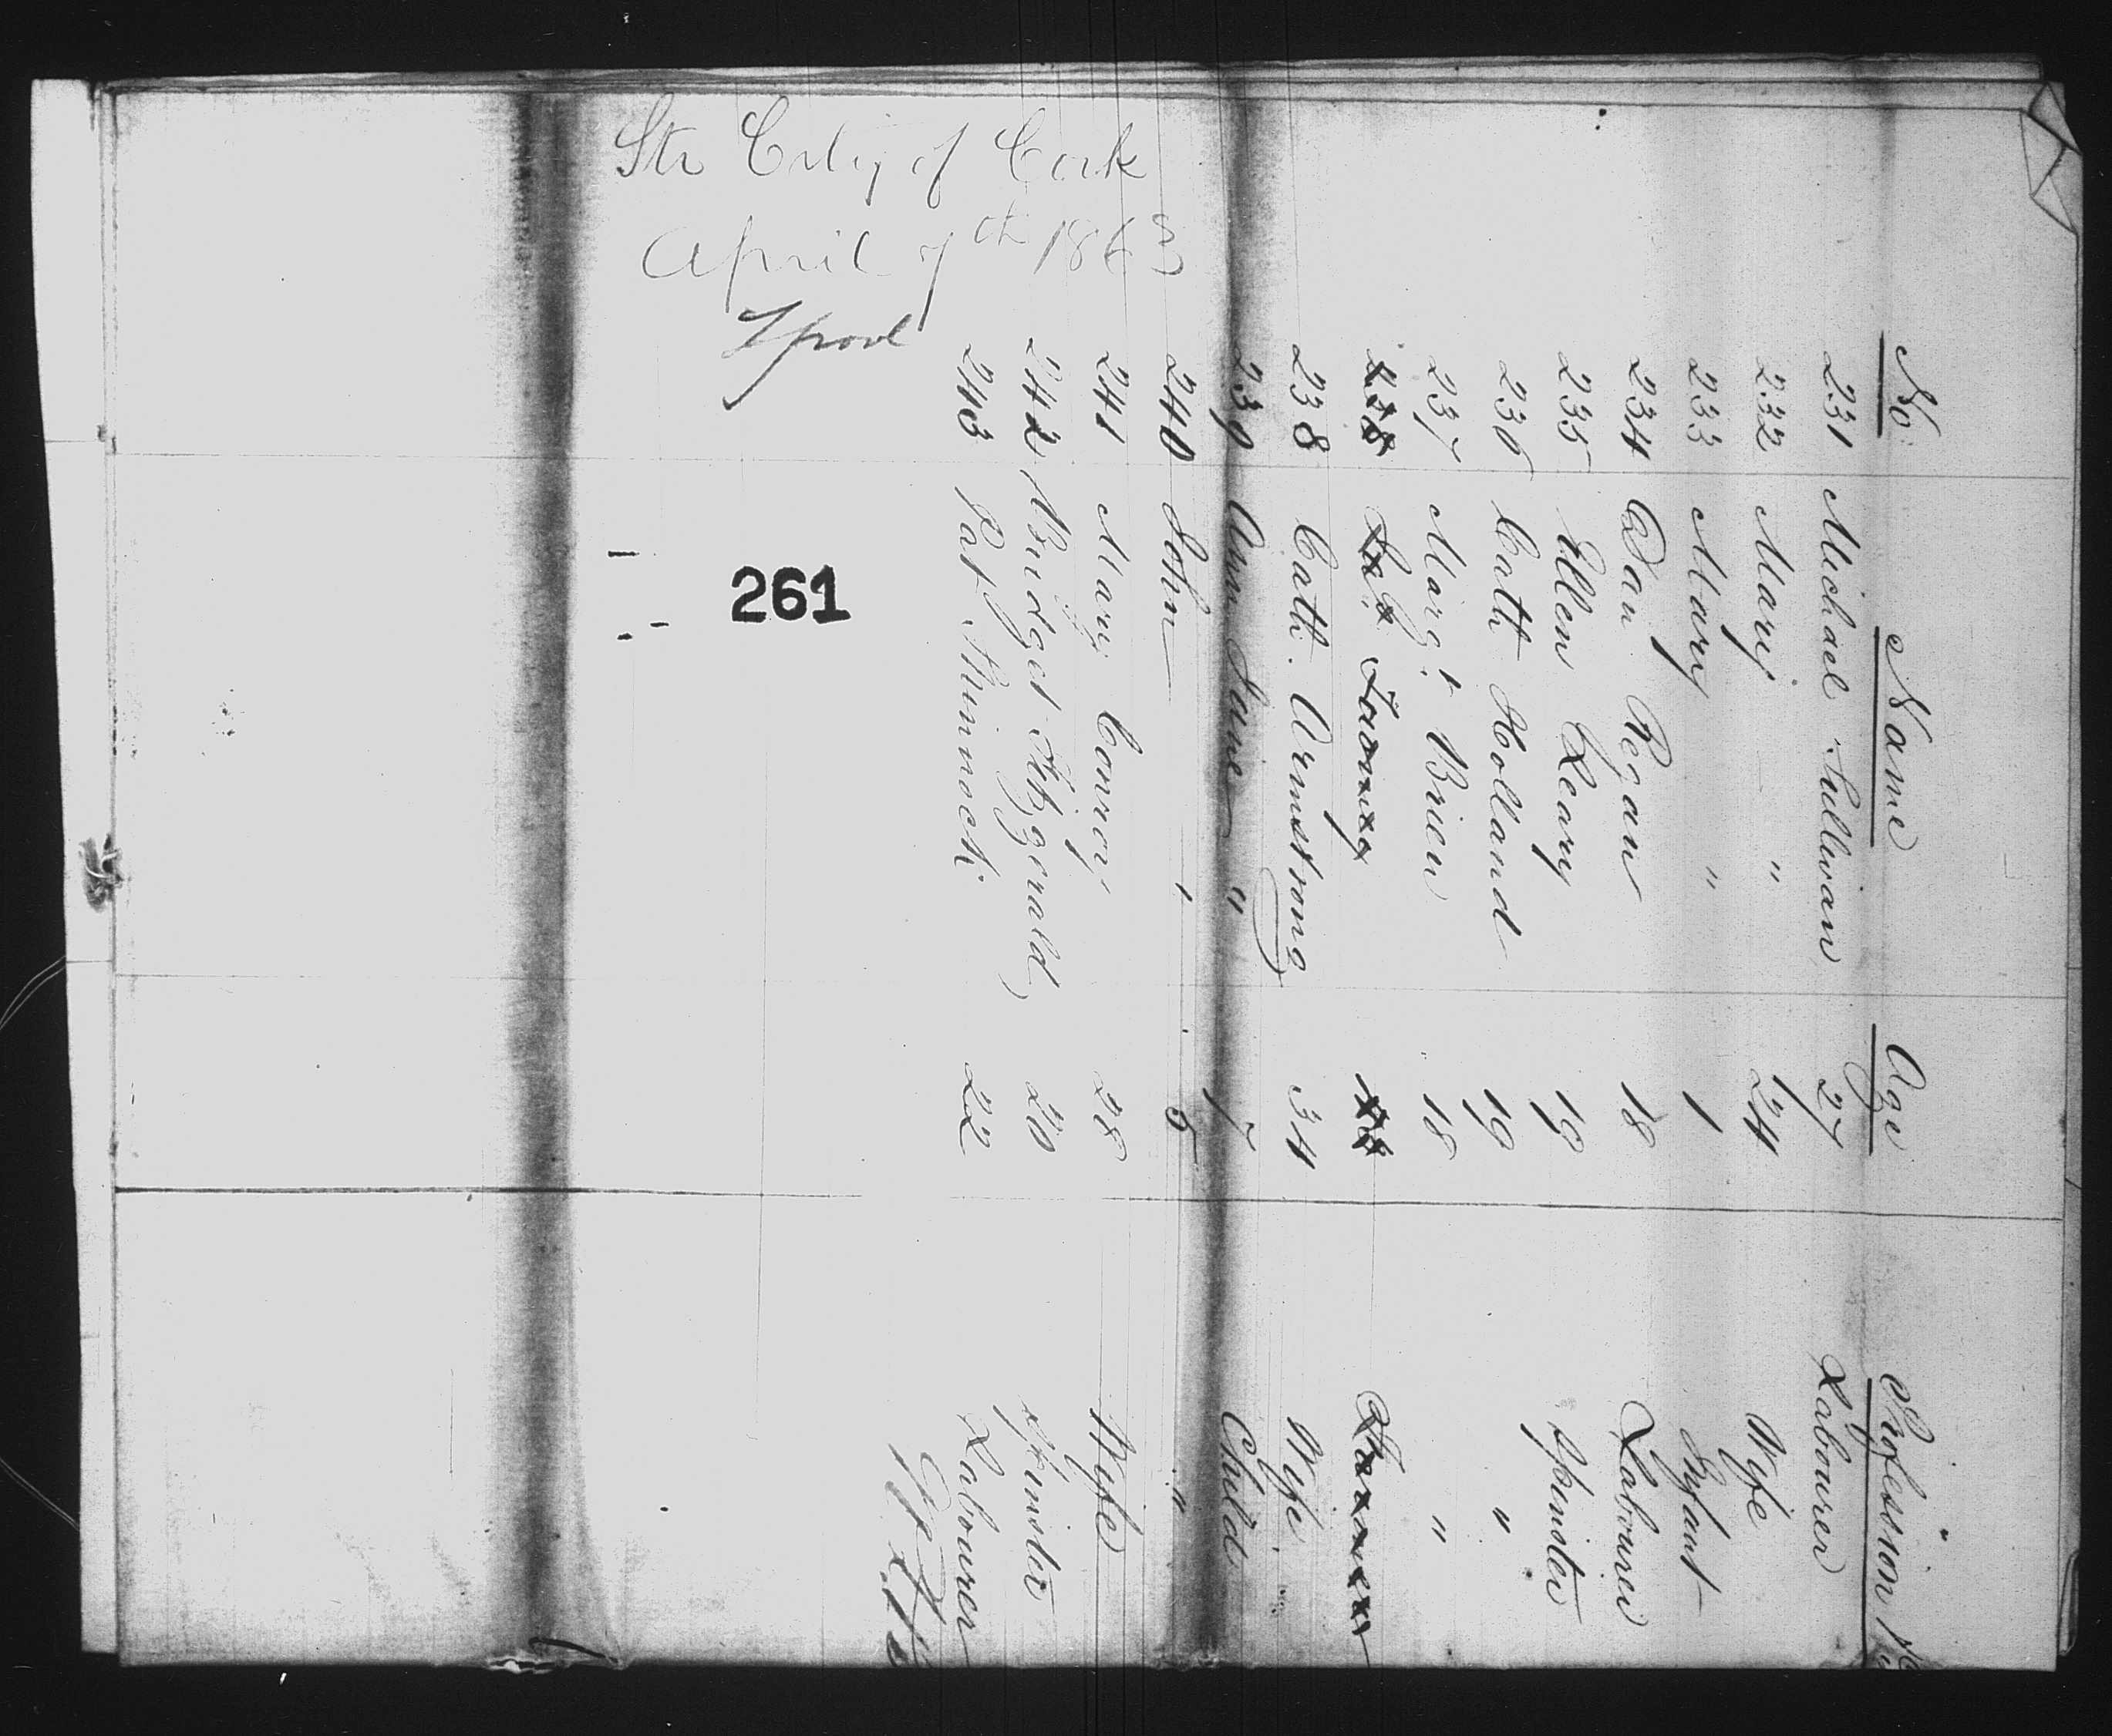 Str City of Cork
April 7th 1863
Lpool
261
No. Name Age Profession
231 Michael Sullivan 27 Labourer
232 Mary " 24 Wife
233 Mary " 1 Infant
234 Dan Regan 18 Labourer
235 Ellen Leary 19 Spinster
236 Cath Holland 19 "
237 Margt Brien 18 "
238
238 Cath. Armstrong 34 Wife
239 Ann Jane " 7 Child
240 John " 5 "
241 Mary Conroy 28 Wife
242 Bridget Fitzgerald 20 Spinster
243 Pat 22 Labourer